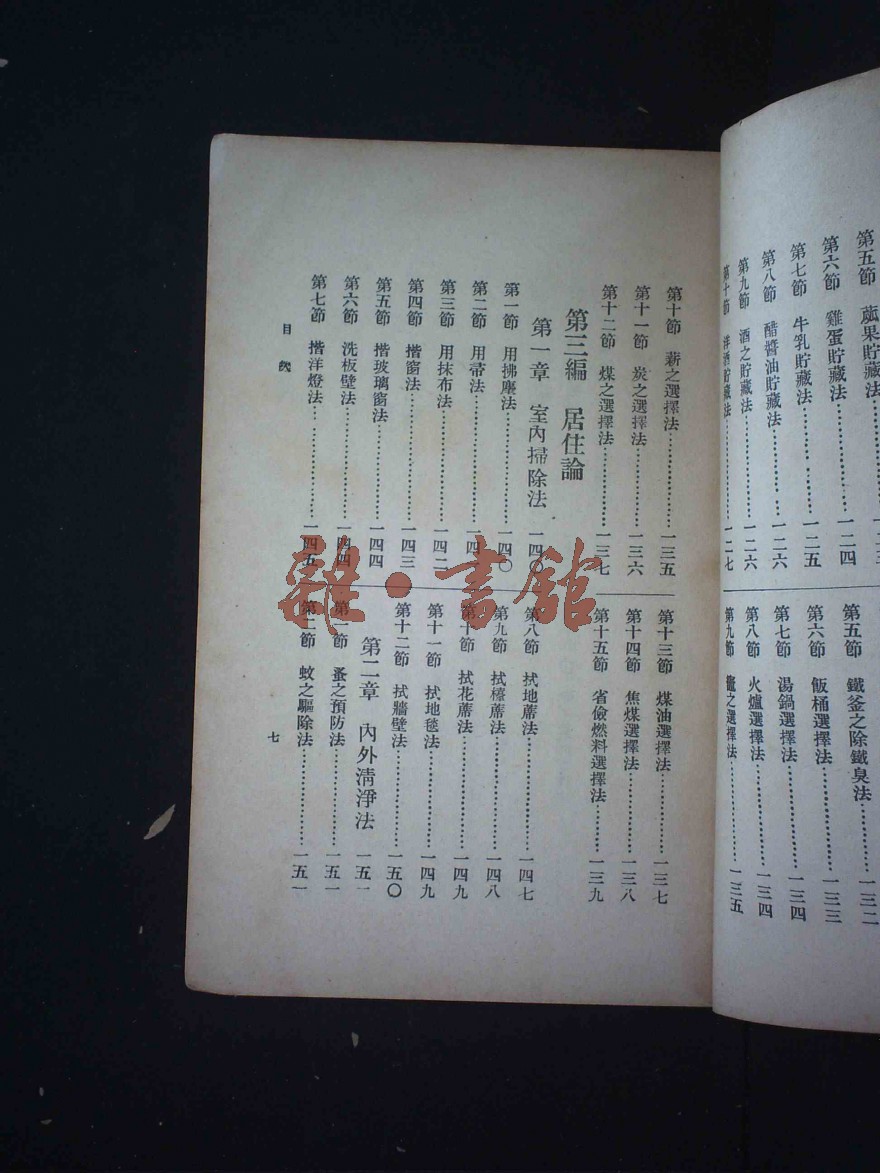 第五節　蔬果貯藏法
第六節　雞蛋貯藏法……一二四
第七節　牛乳貯藏法……一二五
第八節　醋醬油貯藏法……一二六
第九節　酒之貯藏法……一二六
第十節　洋酒貯藏法……一二七
第五節　鐵釜之除鐵臭法……一三二
第六節　飯桶選擇法……一三三
第七節　湯鍋選擇法……一三四
第八節　火爐選擇法……一三四
第九節　竈之選擇法……一三五
第十節　薪之選擇法……一三五
第十一節　炭之選擇法……一三六
第十二節　煤之選擇法……一三七
第十三節　煤油選擇法……一三七
第十四節　焦煤選擇法……一三八
第十五節　省儉燃料選擇法……一三九
第三編　居住論
第一章　室內掃除法　一四〇
第一節　用拂塵法……一四〇
第二節　用帚法……一四
第三節　用抹布法……一四二
第四節　揩窗法……一四三
第五節　揩玻璃窗法……一四四
第六節　洗板壁法……一四四
第七節　揩洋燈法……一四五
第八節　拭地蓆法……一四七
第九節　拭檯蓆法……一四八
第十節　拭花蓆法……一四九
第十一節　拭地毯法……一四九
第十二節　拭牆壁法……一五〇
第二章　內外清淨法　一五一
第一節　蚤之預防法……一五一
第二節　蚊之驅除法……一五一
目次
七
雜·書館